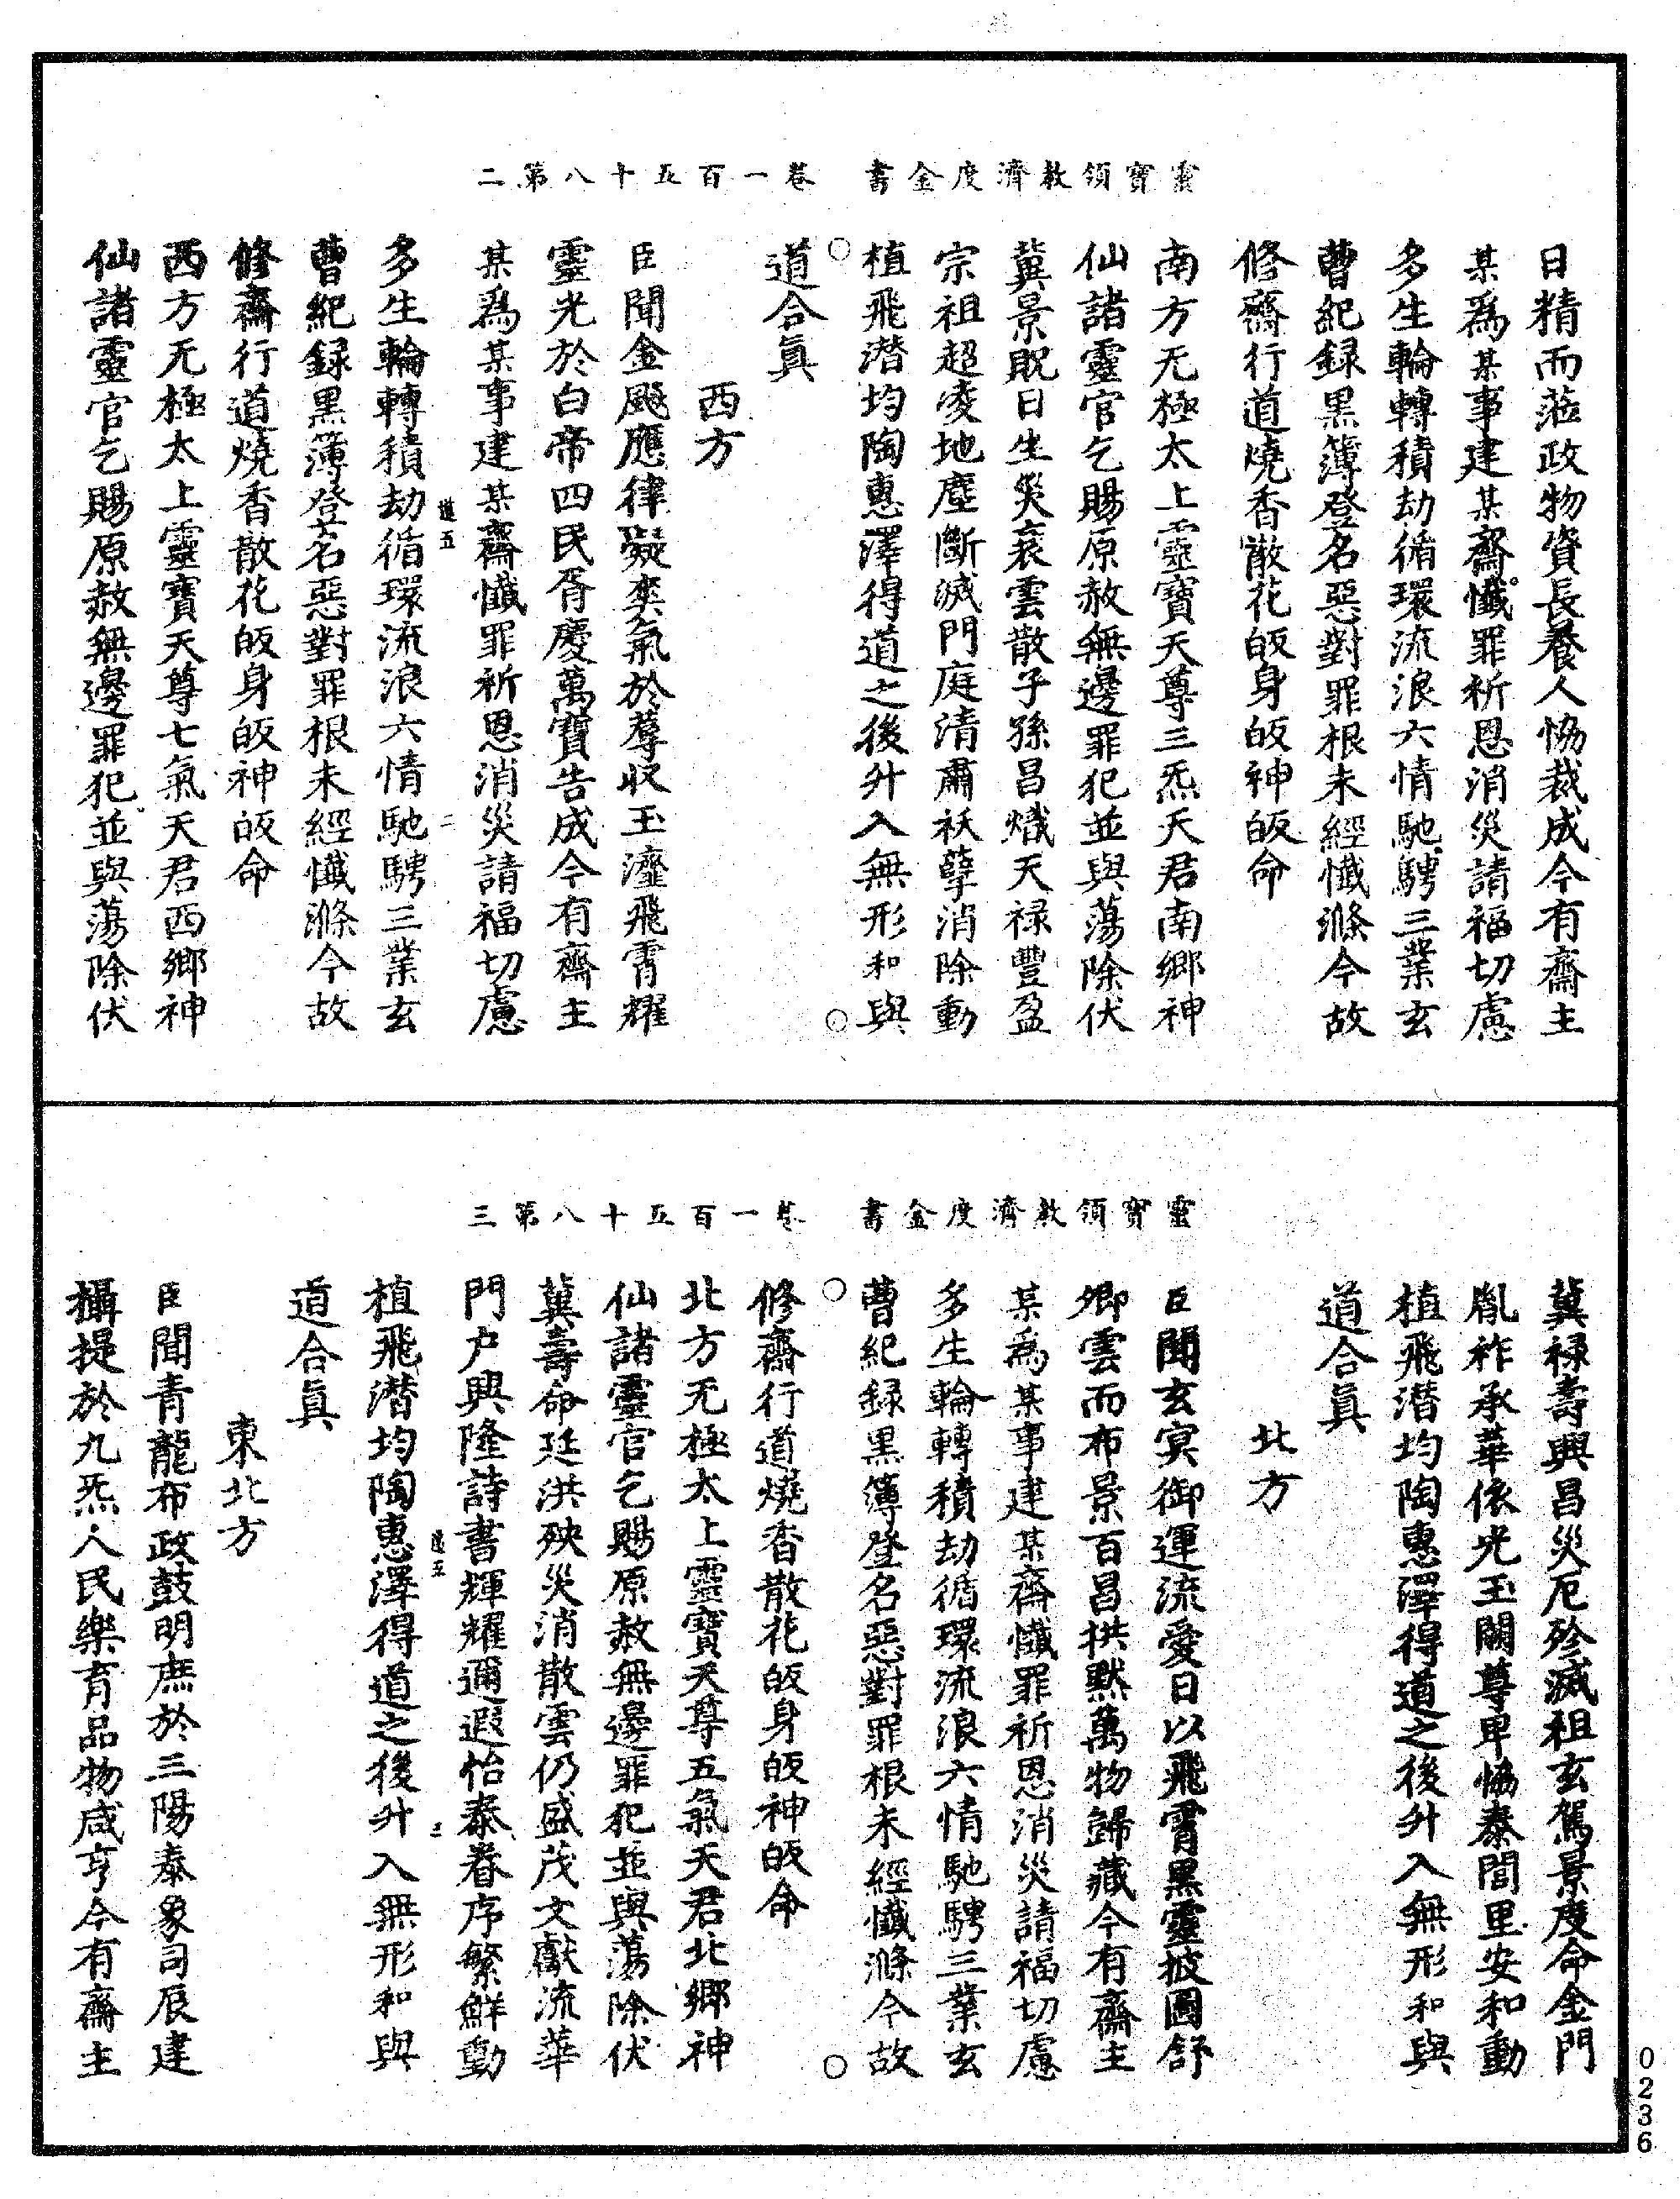 靈寶領教濟度金書　卷一百五十八第二
日精而蒞政物資長養人恊裁成今有齋主
某爲某事建某齋懺罪祈恩消災請福切慮
多生輪轉積劫循環流浪六情馳騁三業玄
曹紀録黑簿登名惡對罪根未經懺滌今故
修齋行道燒香散花皈身皈神皈命
南方无極太上靈寶天尊三炁天君南鄉神
仙諸靈官乞賜原赦無邊罪犯並與蕩除伏
冀景貺日生災衰雲散子孫昌熾天禄豐盈
宗祖超凌地塵斷滅門庭清肅祅孽消除動
植飛潛均陶惠澤得道之後升入無形和與
道合眞
西方
臣聞金飈應律凝爽氣於蓐收玉瀣飛霄耀
靈光於白帝四民胥慶萬寶告成今有齋主
某爲某事建某齋懺罪祈恩消災請福切慮
道五　二
多生輪轉積劫循環流浪六情馳騁三業玄
曹紀録黑簿登名惡對罪根未經懺滌今故
修齋行道燒香散花皈身皈神皈命
西方无極太上靈寶天尊七氣天君西鄉神
仙諸靈官乞賜原赦無邊罪犯並與蕩除伏
靈寶領教濟度金書　卷一百五十八第三
冀禄壽興昌災厄殄滅祖玄駕景度命金門
胤祚承華依光玉闕尊卑恊泰閭里安和動
植飛潛均陶惠澤得道之後升入無形和與
道合眞
北方
臣聞玄冥御運流愛日以飛霄黑靈披圖舒
卿雲而布景百昌拱默萬物歸藏今有齋主
某爲某事建某齋懺罪祈恩消災請福切慮
多生輪轉積劫循環流浪六情馳騁三業玄
曹紀録黑簿登名惡對罪根未經懺滌今故
修齋行道燒香散花皈身皈神皈命
北方无極太上靈寶天尊五氣天君北鄉神
仙諸靈官乞賜原赦無邊罪犯並與蕩除伏
冀壽命延洪殃災消散雲仍盛茂文獻流華
門户興隆詩書輝耀邇遐怡泰眷序繁鮮動
道五　三
植飛潛均陶惠澤得道之後升入無形和與
道合眞
東北方
臣聞青龍布政鼓明庶於三陽泰象司辰建
攝提於九炁人民樂育品物咸亨今有齋主
0236